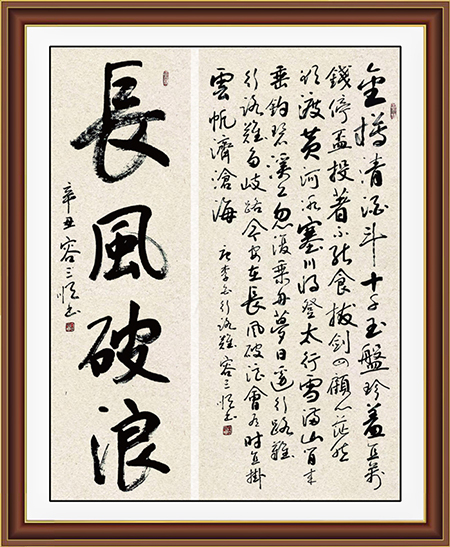 金樽清酒斗十千玉盤珍羞直萬
錢停盃投著不能食拔劍四顧心茫然
欲渡黃河冰塞川將登太行雪滿山閒來
垂釣碧溪上忽復乘舟夢日邊行路難
行路難多歧路今安在長風破浪會有時直掛
雲帆濟滄海
唐李白行路難 容三书
長風破浪
辛丑 容三书